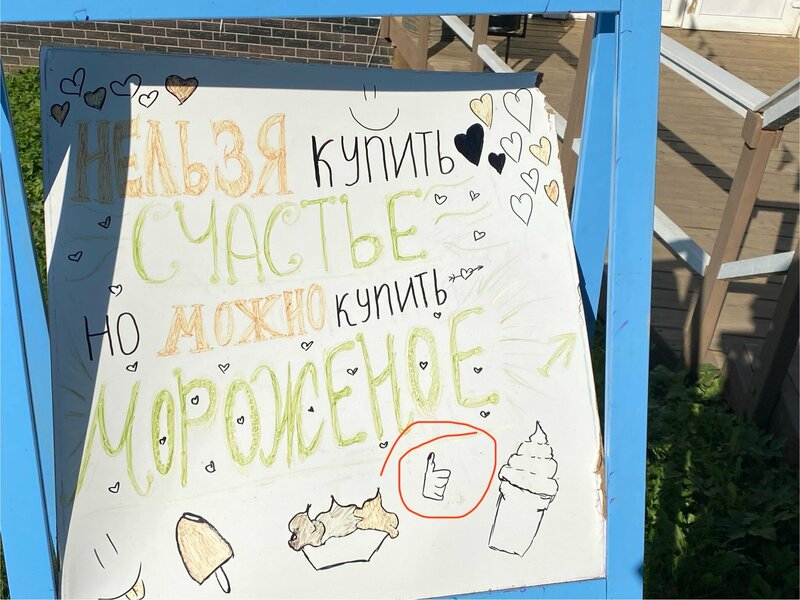 НЕЛЬЗЯ КУПИТЬ
СЧАСТЬЕ
НО МОЖНО КУПИТЬ
МОРОЖЕНОЕ